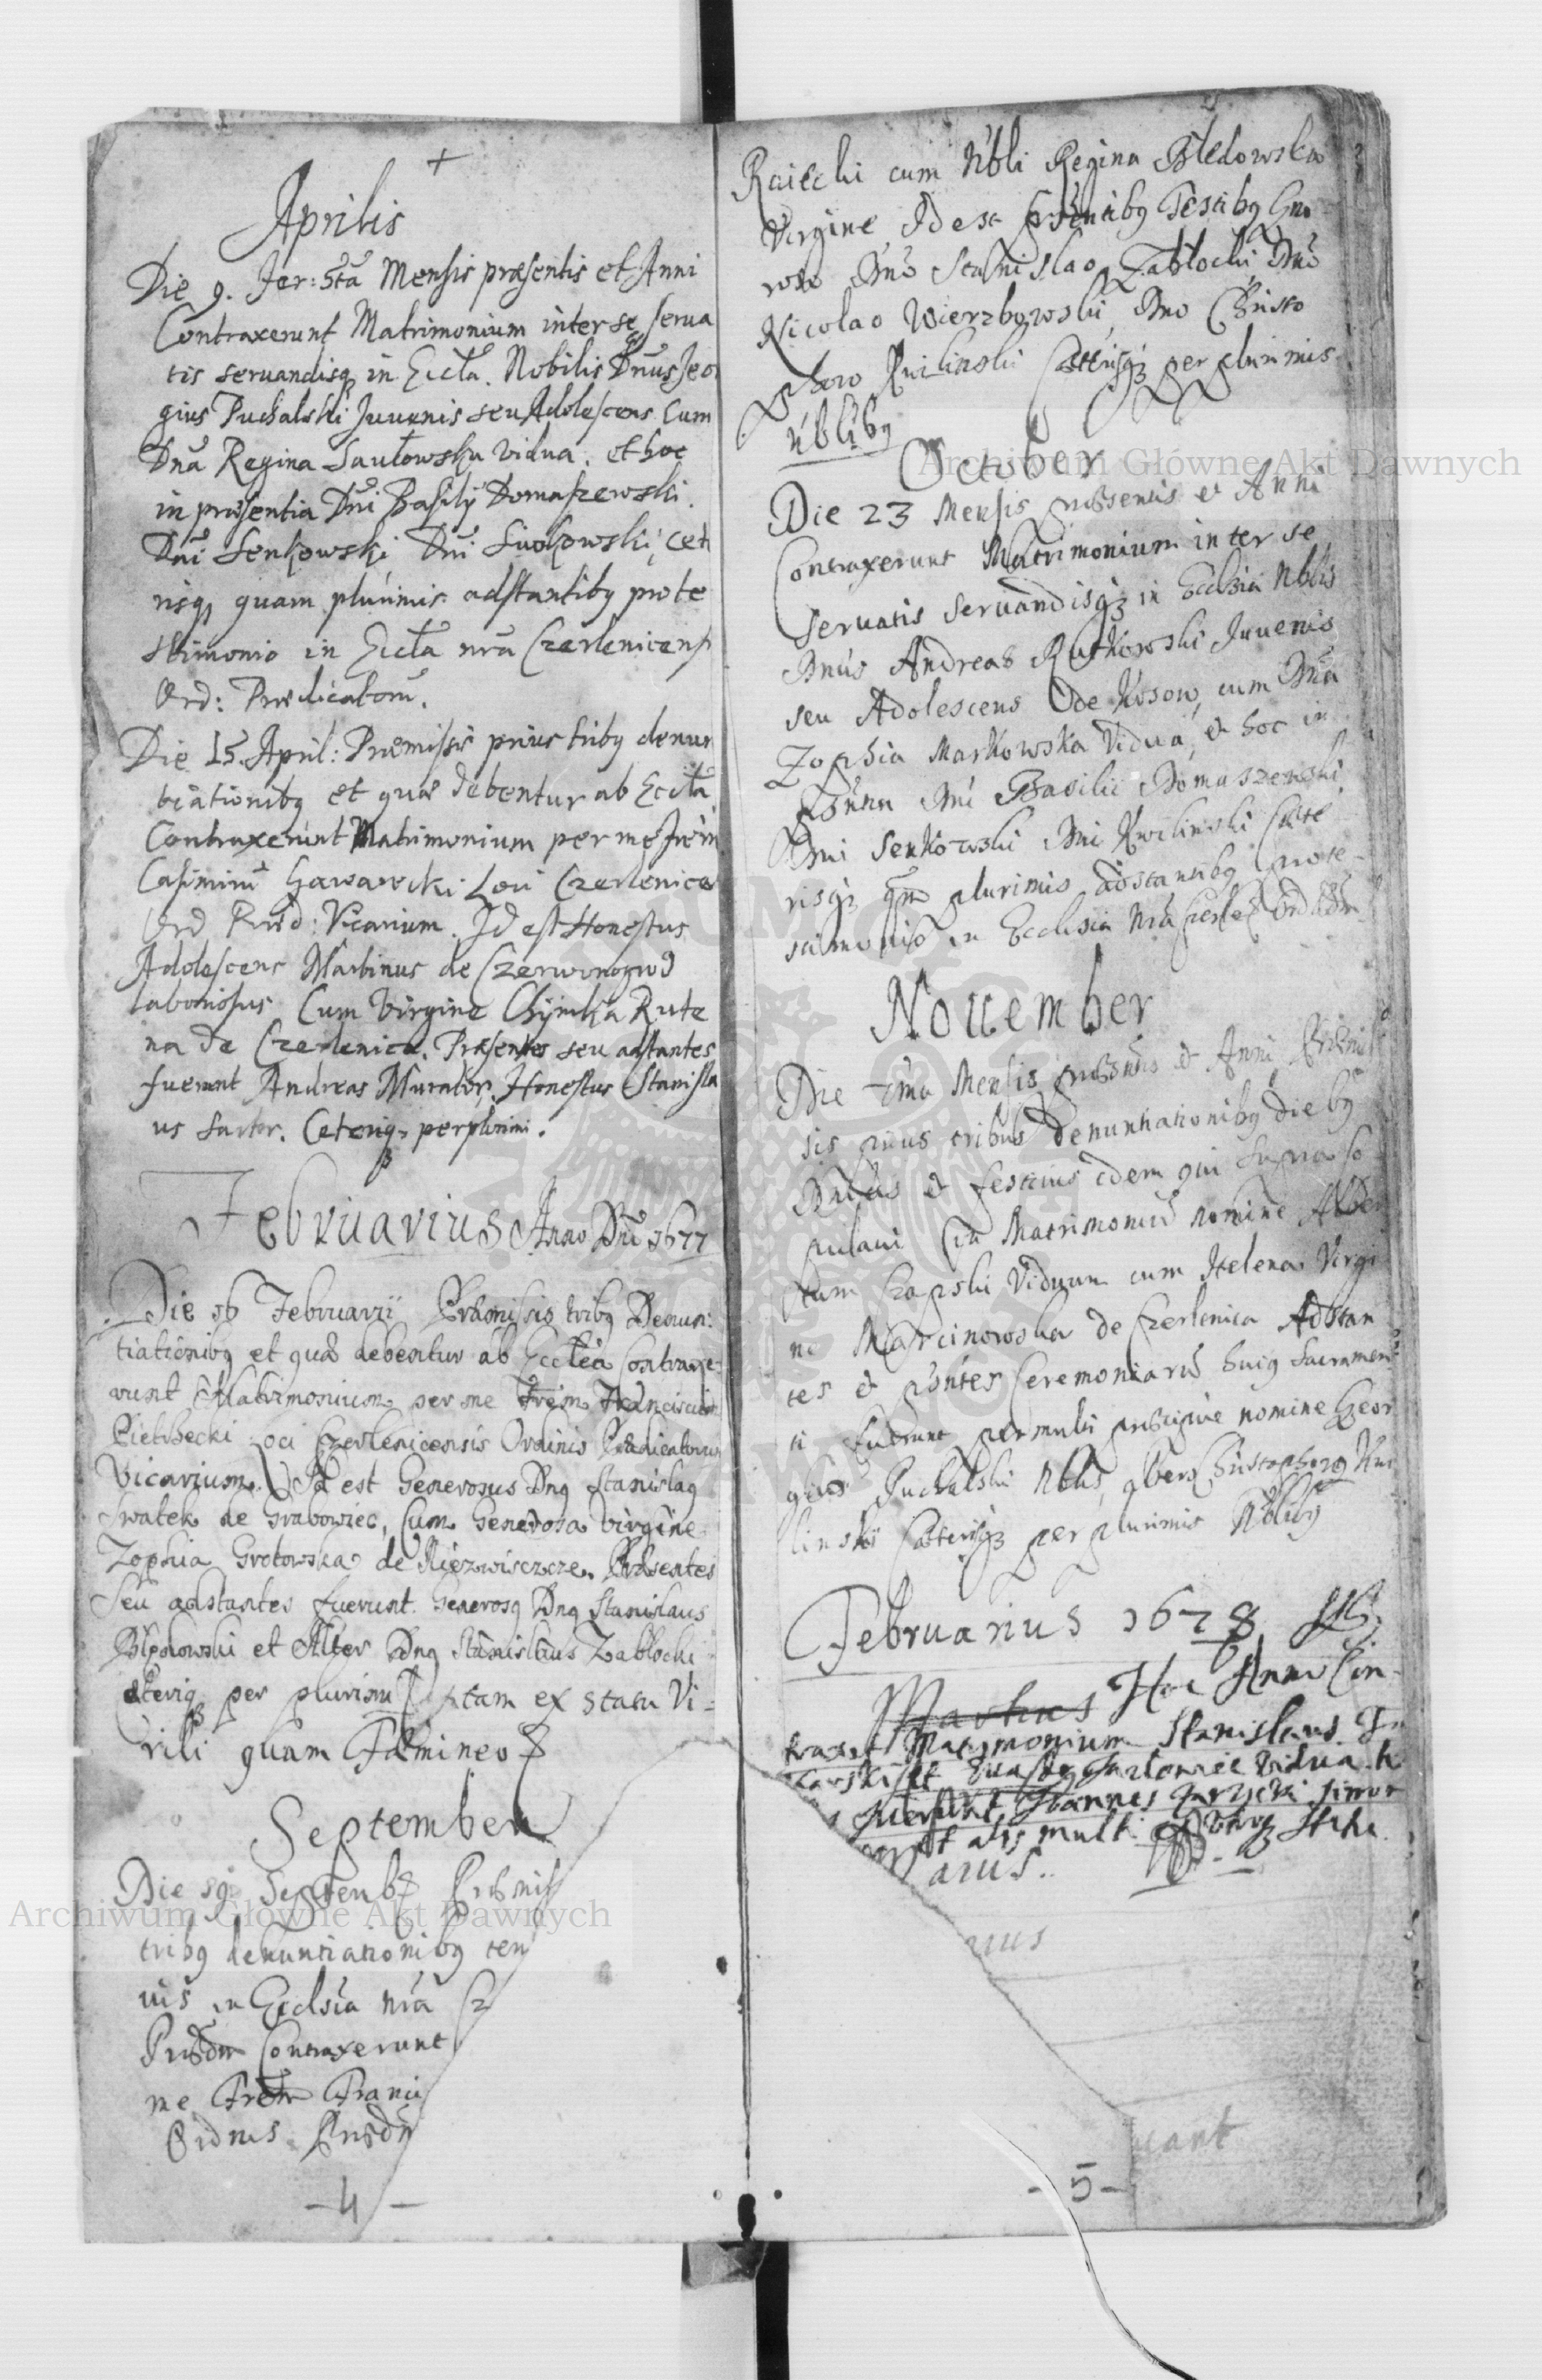 +
Aprilis
Die 9. Fer: 5ta Mensis præsentis et Anni
Contraxerunt Matrimonium inter se serua
tis seruandisq in Eccla. Nobilis Dnus Jeo
gius Puchalski Juvenis seu Adolescens Cum
Dna Regina Saułowska vidua. et hoc
in præsentia Dni Basilÿ Domaszewski.
Dni Senkowski Dni cet
risq quam plurimis adstantibq pro te
stimonio in Eccla nra Czerlenicensi
Ord: Prædicatorũ.
Die 15. April: Præmissis prius tribq denun
tiationibq et quæ debentur ab Eccla
Contraxerunt Matrimonium per me Frem
Casimirũ Loci Czerlenice
Ord Præd: Vicarium. Id est Honestus
Adolescens Martinus de Czerwonogrod
laboriosus Cum Virgine Chÿmka Rute
na de Czerlenica. Præsentes seu adstantes
fuerunt Andreas Murator, Honestus Stanisla
us Sartor. Ceteriq perplurimi.
Februarius Anno Dni 1677
Die 16 Februarii Præmissis tribq Denun:
tiationibq et quæ debentur ab Ecclea Contraxe:
runt Matrimonium per me Frem Franciscum
Pietrzecki loci Czerlenicensis Ordinis Prædicatorum
Vicarium. Id est Generosus Dnq Stanislaq
Swatek de Grabowiec, Cum Generosa virgine
Zophia Grotowska de Niezwiszcze. Præsentes
Seu adstantes fuerunt. Generosq Dnq Stanislaus
Błędowski et Alter Dnq Stanislaus Zabłocki
Cæteriq per plurimi tam ex statu Vi-
rili quam Fæmineo
September
Die 19 Septemb Præmis
tribq denuntiationibq
in Ecclsia nra Cz
Prædm Contraxerunt
me Frem Franci
Ordnis Præd
- 4 -
Raiecki cum Nbli Regina Błedowska
Virgine Id est præsentibq Testibq Gne
roso Dno Stanislao Zabłocki Dno
Nicolao Wierzbowski Dno Christo
phoro Kwilinski Cæterisq perplurimis
Nblibq
October
Die 23 Mensis præsentis et Anni
Contraxerunt Matrimonium inter se
servatis servandisq in Ecclsia Nblis
Dnus Andreas Rutkowski Juvenis
seu Adolescens de Kosow, cum Dna
Zophia Markowska Vidua, et hoc in
Dni Basilii Domaszewski
Dni Senkowski Dni Kwilinski Cæte
risq qm plurimis adstantibq pro te-
stimonio in Ecclesia Nra
November
Die Mensis præsentis et Anni Præmis
sis prius tribus denuntiationibq diebq
et festivis idem qui supra co
pulavi Matrimoniũ nomine Alber
tum Czapski Viduum cum Helena Virgi
ne Marcinowska de Czerlenica Adstan
tes et pntes Ceremoniarũ huiq Sacramen
ti fuerunt permulti præcipue nomine Geor
gius Puchalski Nblis, Christophorq Kwi
linski Cæteriq perplurimis Nblibq
Februarius 1678
Martius Hoc Anno Con
traxit Matrimonium Stanislaus
vidua
fuerunt Joannes
et alÿs multi
arus.
nus
cant
- 5 -
Archiwum Główne Akt Dawnych
Archiwum Główne Akt Dawnych